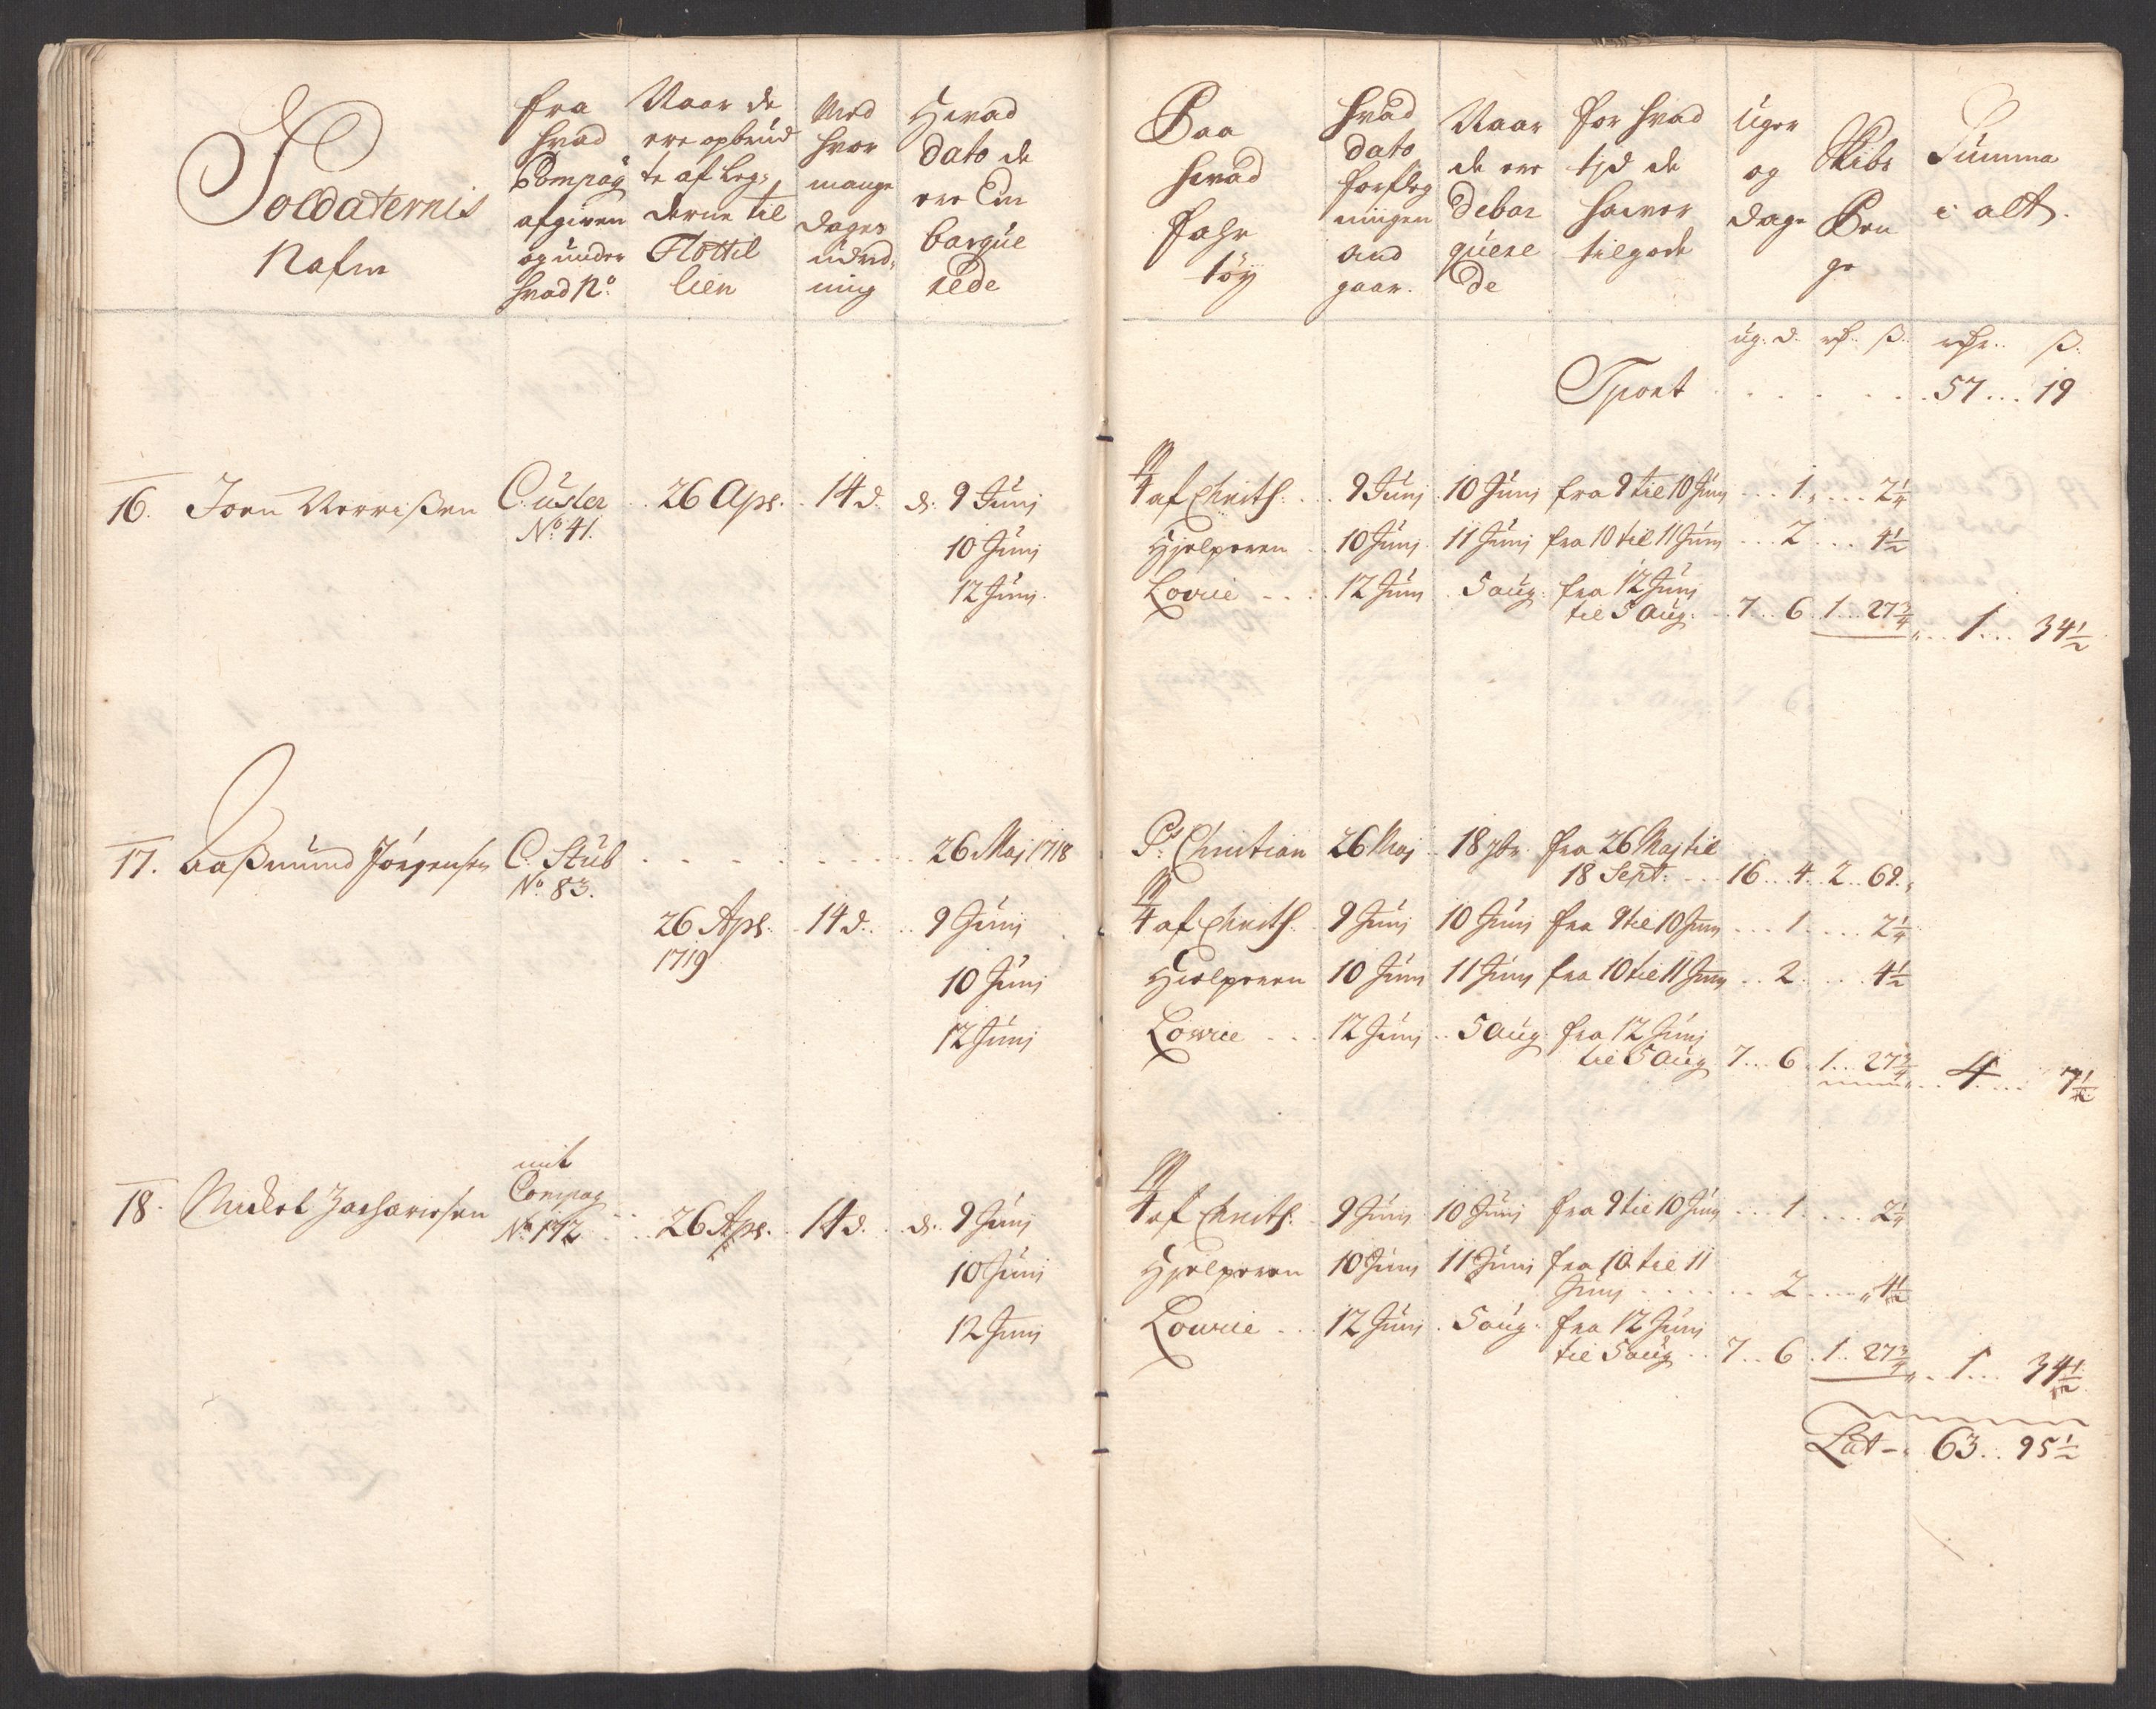 Soldaternis
Nafm
fra
hvad
Compag
afgiven
og under
hvad No.
Naar de
ere opbrud
te af Leg-
derne til
Flottil
lien
Med
hvor
mange
dages
udred-
ning
Hvad
dato de
ere Em
barque
rede
Paa
hvad
fahr
töy
hvad
dato
forpleg
ningen
and
gaar.
Naar
de ere
debar
quere
de
for hvad
tjd de
hawer
tilgode
Uger
og
dage
Skibs
Pen
ge
Summa
i alt.
ug. d. rd. ß. rdr. ß.
Tport . . . . . . 57 . . . 19
16. Joen Nerrißen C. Usler . . 26 Apr. . 14 d. d. 9 Junj 4 af Chrith. . . 9 Junj 10 Junj fra 9 til 10 Junj . . . 1 . . . . 2¼
No. 41. 10 Junj Hjelperen . . 10 Junj 11 Junj fra 10 til 11 Junj . . . 2 . . . 4½
12 Junj. Lovise . . . 12 Junj . 5 aug. fra 12 Junj
til 5 Aug. . . 7 . . 6 . 1 . . . 27¾ . . . 1 . . . 34½
17. Aaßmund Jörgensen C. Stub . . . . . . . . . 26 Maj 1718 P. Christian 26 Maj . 18 7br. fra 26 Maj til
No. 83. 18 Sept. . . . 16 . . 4 . . 2 . . 69.
26 Apr. . 14 d. . . 9 Junj 4 af Chrith. . 9 Junj 10 Junj fra 9 til 10 Junj . . . 1 . . . . 2¼
1719
10 Junj Hielperen 10 Junj 11 Junj fra 10 til 11 Junj . . 2 . . . . 4½
12 Junj Lowise . . . 12 Junj . . 5 Aug. fra 12 Junj
til 5 Aug. 7 . . . 6 . 1 . . 27¾ . . . 4 . . . . 7½
mit
18. Mickel Zachariesen Compag
No. 172 . . . 26 Apr. . 14 d. . . d. 9 Junj 4 af Chrith. . 9 Junj 10 Junj fra 9 til 10 Junj . . . 1 . . . . 2¼
10 Junj Hjelperen 10 Junj 11 Junj fra 10 til 11
Junj . . . . . . 2 . . . . 4½
12 Junj Lowise . . . 12 Junj . 5 aug. fra 12 Junj
til 5 aug . . 7 . . 6 . 1 . . 27¾ . . 1 . . . 34½
Lat - 63 . . 95½